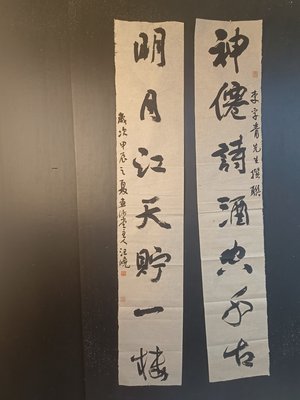 神僊詩酒空千古
李孚青先生撰聯
明月江天貯一樓
歲次甲辰之夏